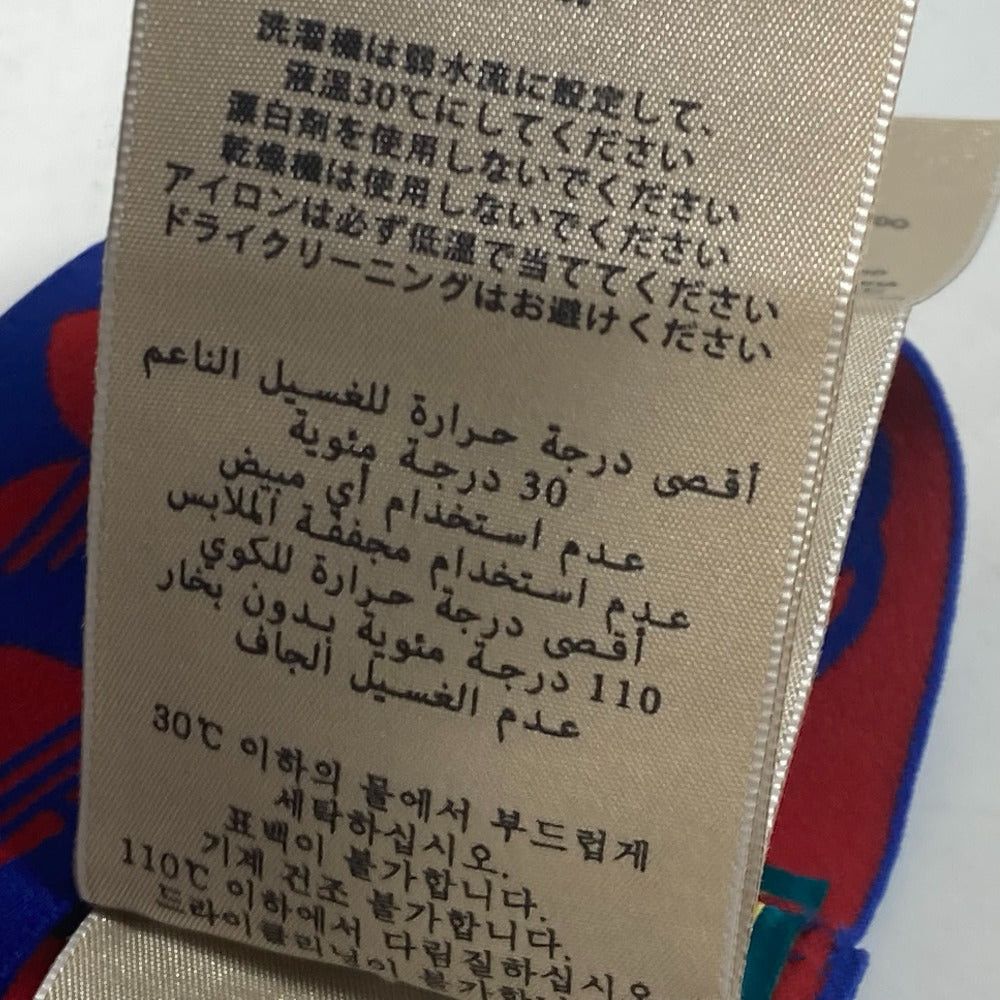 洗濯機は弱水流に設定して、
液温30℃にしてください
漂白剤を使用しないでください
乾燥機は使用しないでください
アイロンは必ず低温で当ててください
ドライクリーニングはお避けください
أقصى درجة حرارة للغسيل الناعم
30 درجة مئوية
عدم استخدام أي مبيض
عدم استخدام مجففة الملابس
أقصى درجة حرارة للكوي
110 درجة مئوية بدون بخار
عدم الغسيل الجاف
30℃ 이하의 물에서 부드럽게
세탁하십시오.
표백이 불가합니다.
기계 건조 불가합니다.
110℃ 이하에서 다림질하십시오
드라이클리닝이 불가합니다